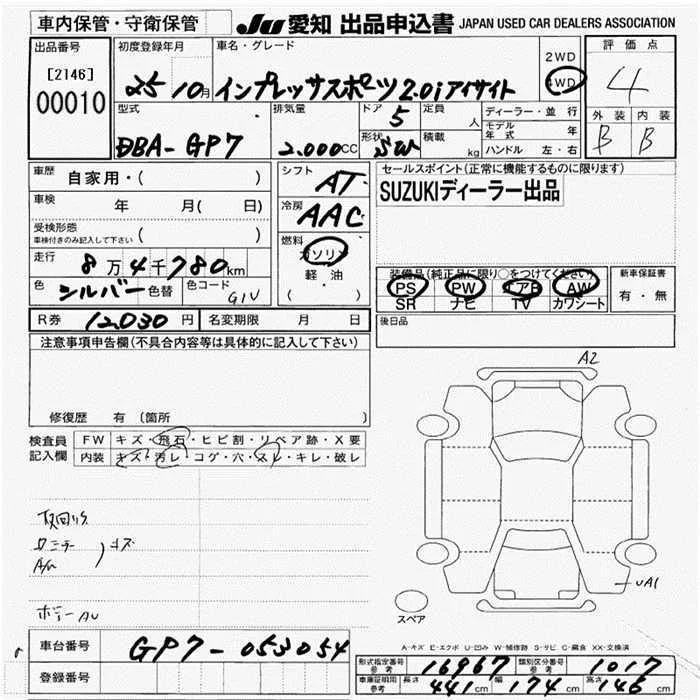 車内保管・守衛保管
JU 愛知 出品申込書 JAPAN USED CAR DEALERS ASSOCIATION
出品番号
[2146]
00010
初度登録年月
25 10月
車名・グレード
インプレッサスポーツ2.0iアイサイト
2WD
4WD
評価点
4
外装 内装
B B
型式
DBA-GP7
排気量
2.000CC
ドア
5
形状
SW
定員
人
積載
kg
ディーラー・並行
モデル年式 年
ハンドル 左・右
車歴 自家用・( )
車検 年 月( 日)
受検形態
車検付きのみ記入して下さい ( )
走行 8万4千780km
色 シルバー 色替 色コード G1U
シフト AT
冷房 AAC
燃料 ガソリン
軽油
( ・ )
セールスポイント(正常に機能するものに限ります)
SUZUKIディーラー出品
装備品(純正品に限り○をつけてください)
PS PW エアB AW
SR ナビ TV カワシート
新車保証書
有・無
R券 12030円 名変期限 月 日
後日品
注意事項申告欄(不具合内容等は具体的に記入して下さい)
修復歴 有(箇所 )
検査員記入欄
FW キズ・飛石・ヒビ割・リペア跡・X要
内装 キズ・汚レ・コゲ・穴・スレ・キレ・破レ
キズ
A2
UA1
スペア
A-キズ E-エクボ U-凹み W-補修跡 S-サビ C-腐食 XX-交換済
車台番号 GP7-053054
登録番号
形式指定番号参考 16967 類別区分番号参考 1017
車庫証明用参考 長さ 441cm 幅 174cm 高さ 146cm